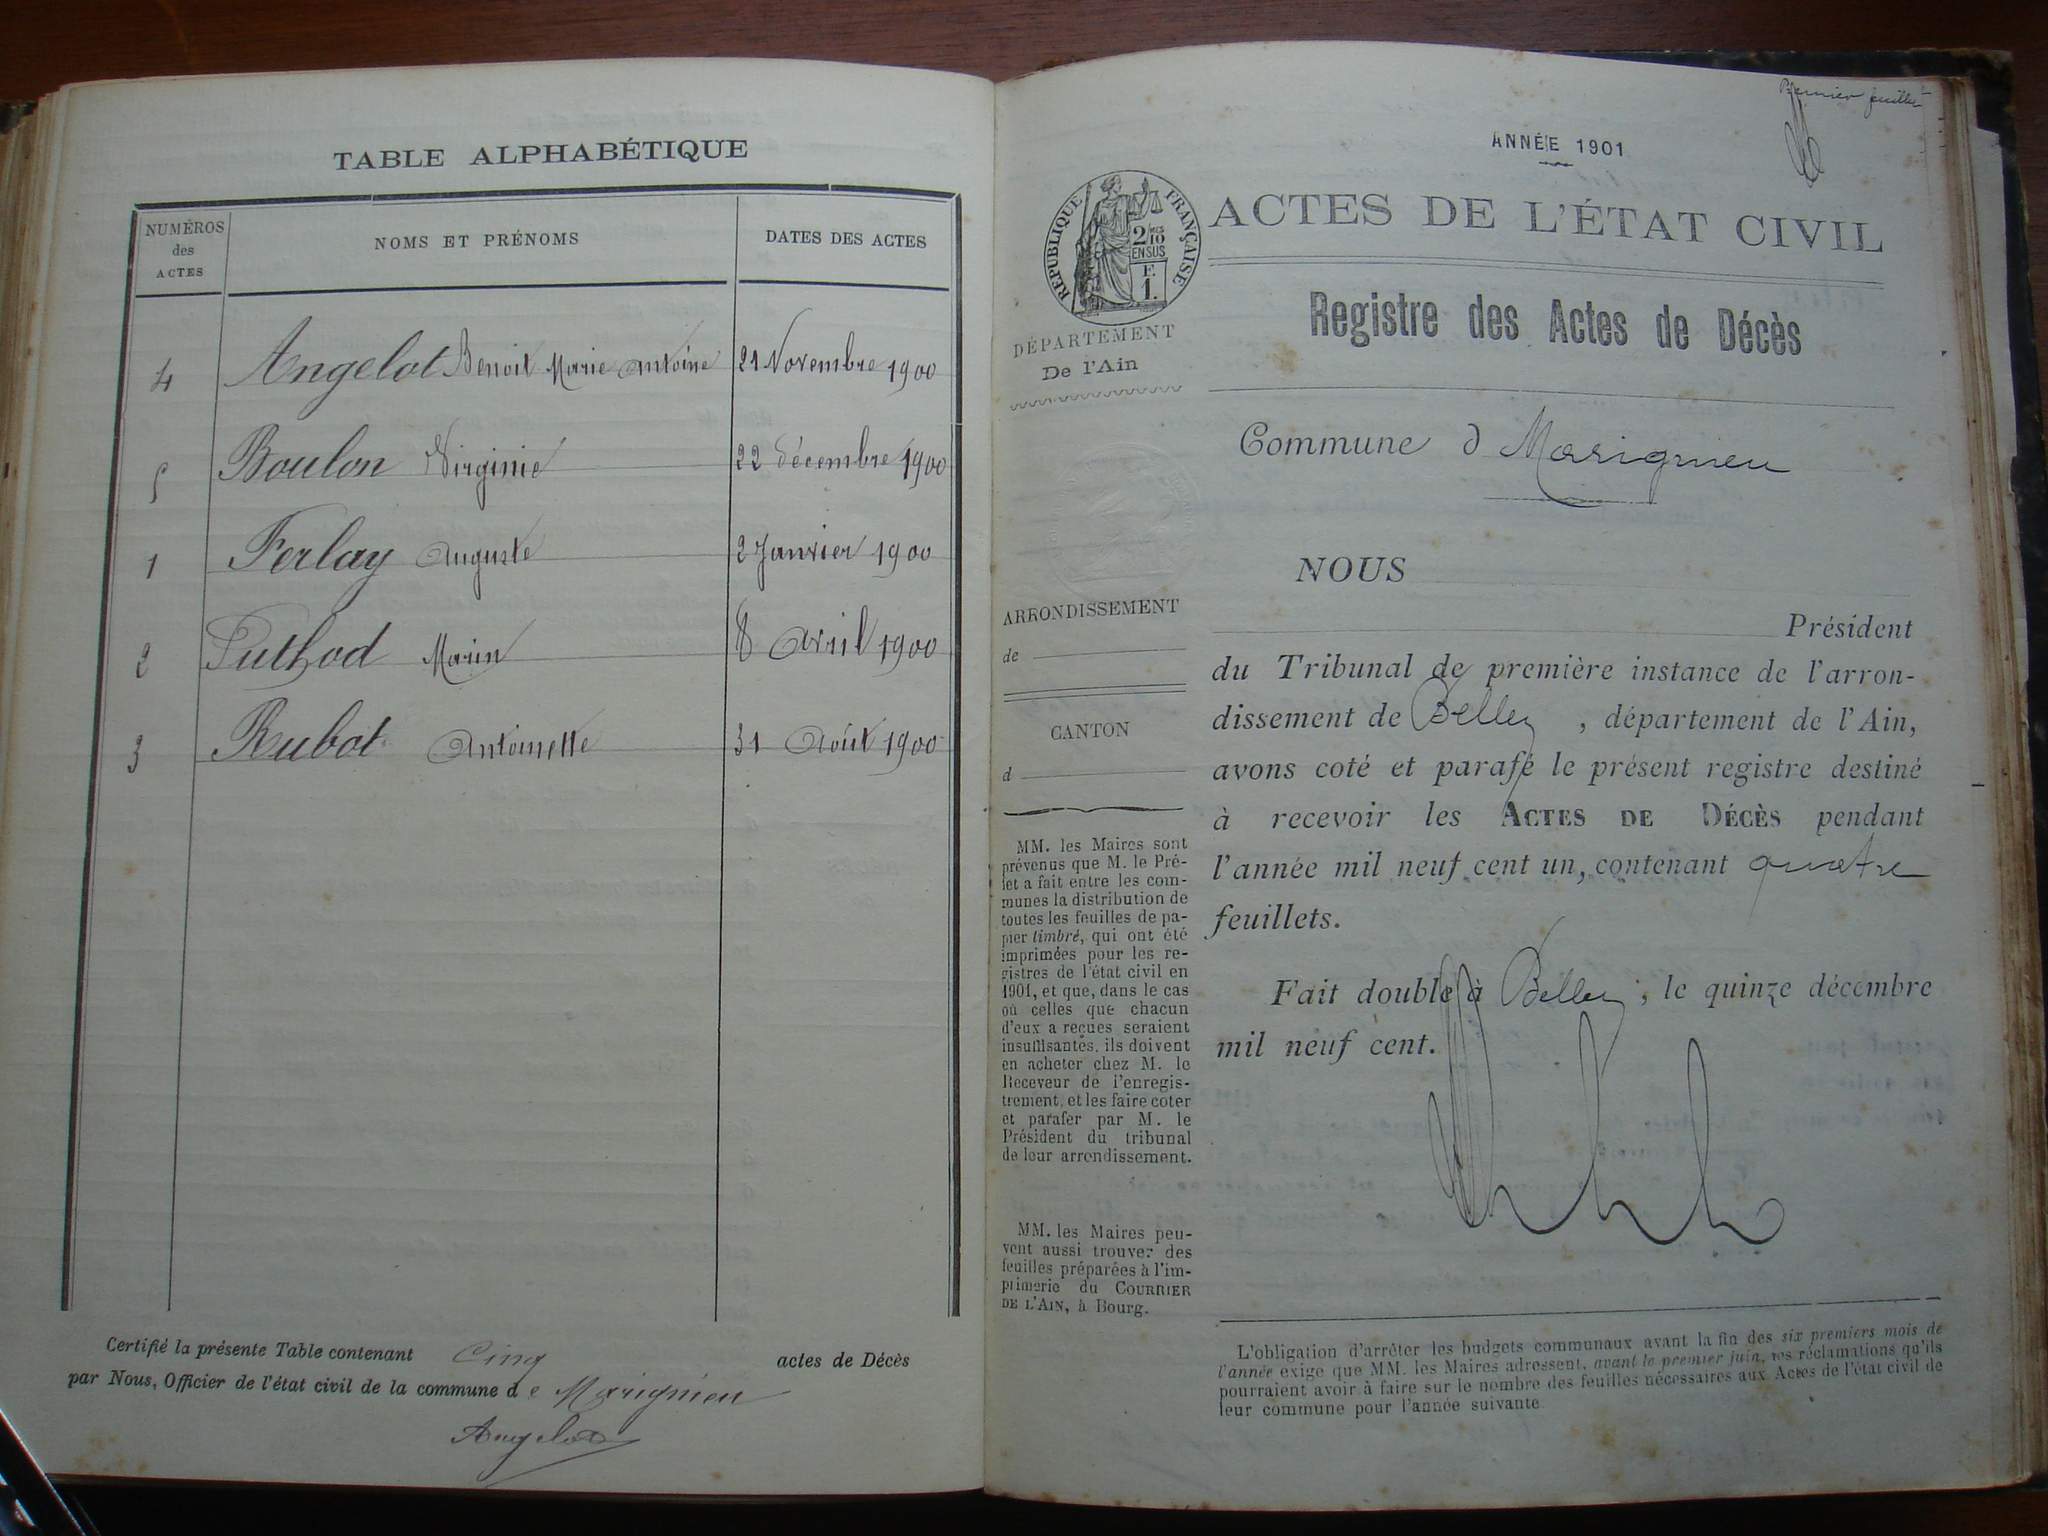 TABLE ALPHABÉTIQUE
NUMÉROS des ACTES
NOMS ET PRÉNOMS
DATES DES ACTES
4 Angelot Benoit Marie Antoine 21 Novembre 1900
5 Boulon Virginie 22 décembre 1900
1 Ferlay Auguste 2 Janvier 1900
2 Puthod Marin 8 Avril 1900
3 Rubot Antoinette 31 Août 1900
Certifié la présente Table contenant Cinq actes de Décès
par Nous, Officier de l'état civil de la commune de Marignieu
Angelot
Premier feuillet
ANNÉE 1901
RÉPUBLIQUE FRANÇAISE
2/10
EN SUS
F.
1.
ACTES DE L'ÉTAT CIVIL
Registre des Actes de Décès
DÉPARTEMENT
De l'Ain
Commune d Marignieu
ARRONDISSEMENT
de
CANTON
d
MM. les Maires sont
prévenus que M. le Pré-
fet a fait entre les com-
munes la distribution de
toutes les feuilles de pa-
pier timbré, qui ont été
imprimées pour les re-
gistres de l'état civil en
1901, et que, dans le cas
où celles que chacun
d'eux a reçues seraient
insuffisantes, ils doivent
en acheter chez M. le
Receveur de l'enregis-
trement, et les faire coter
et parafer par M. le
Président du tribunal
de leur arrondissement.
MM. les Maires peu-
vent aussi trouver des
feuilles préparées à l'im-
primerie du COURRIER
DE L'AIN, à Bourg.
NOUS
Président
du Tribunal de première instance de l'arron-
dissement de Belley, département de l'Ain,
avons coté et parafé le présent registre destiné
à recevoir les ACTES DE DÉCÈS pendant
l'année mil neuf cent un, contenant quatre
feuillets.
Fait double à Belley, le quinze décembre
mil neuf cent.
L'obligation d'arrêter les budgets communaux avant la fin des six premiers mois de
l'année exige que MM. les Maires adressent, avant le premier juin, les réclamations qu'ils
pourraient avoir à faire sur le nombre des feuilles nécessaires aux Actes de l'état civil de
leur commune pour l'année suivante.